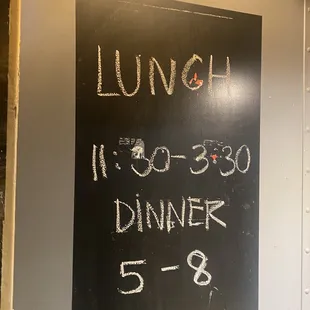 LUNCH
11:30-3:30
DINNER
5-8